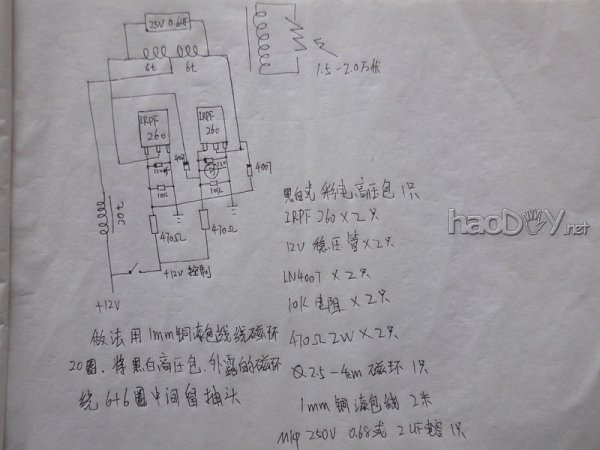 25V 0.68F
6t 6t
1.5-2.0万伏
IRPF
260
IRPF
260
4007
10K
10K
20t
470Ω
470Ω
+12V 控制
+12V
黑白或彩电高压包 1只
IRPF 260×2只
12V 稳压管×2只
IN4007×2只
10K 电阻×2只
470Ω 2W×2只
25-4cm 磁环 1只
1mm 铜漆包线 2米
MKP 250V 0.68或 2UF电容 1只
做法用1mm铜漆包线绕磁环
20圈. 将黑白高压包.外露的磁环
绕 6+6圈中间留抽头
haoDIY.net